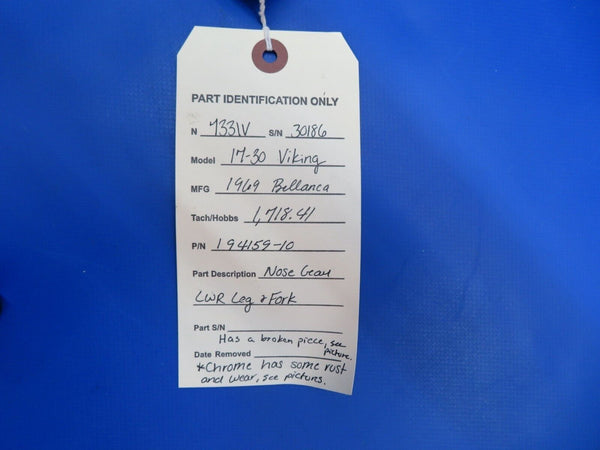 PART IDENTIFICATION ONLY
N 7331V S/N 30186
Model 17-30 Viking
MFG 1969 Bellanca
Tach/Hobbs 1,718.41
P/N 194159-10
Part Description Nose Gear
LWR Leg & Fork
Part S/N
Has a broken piece, see picture.
Date Removed
*Chrome has some rust
and wear, see picturs.